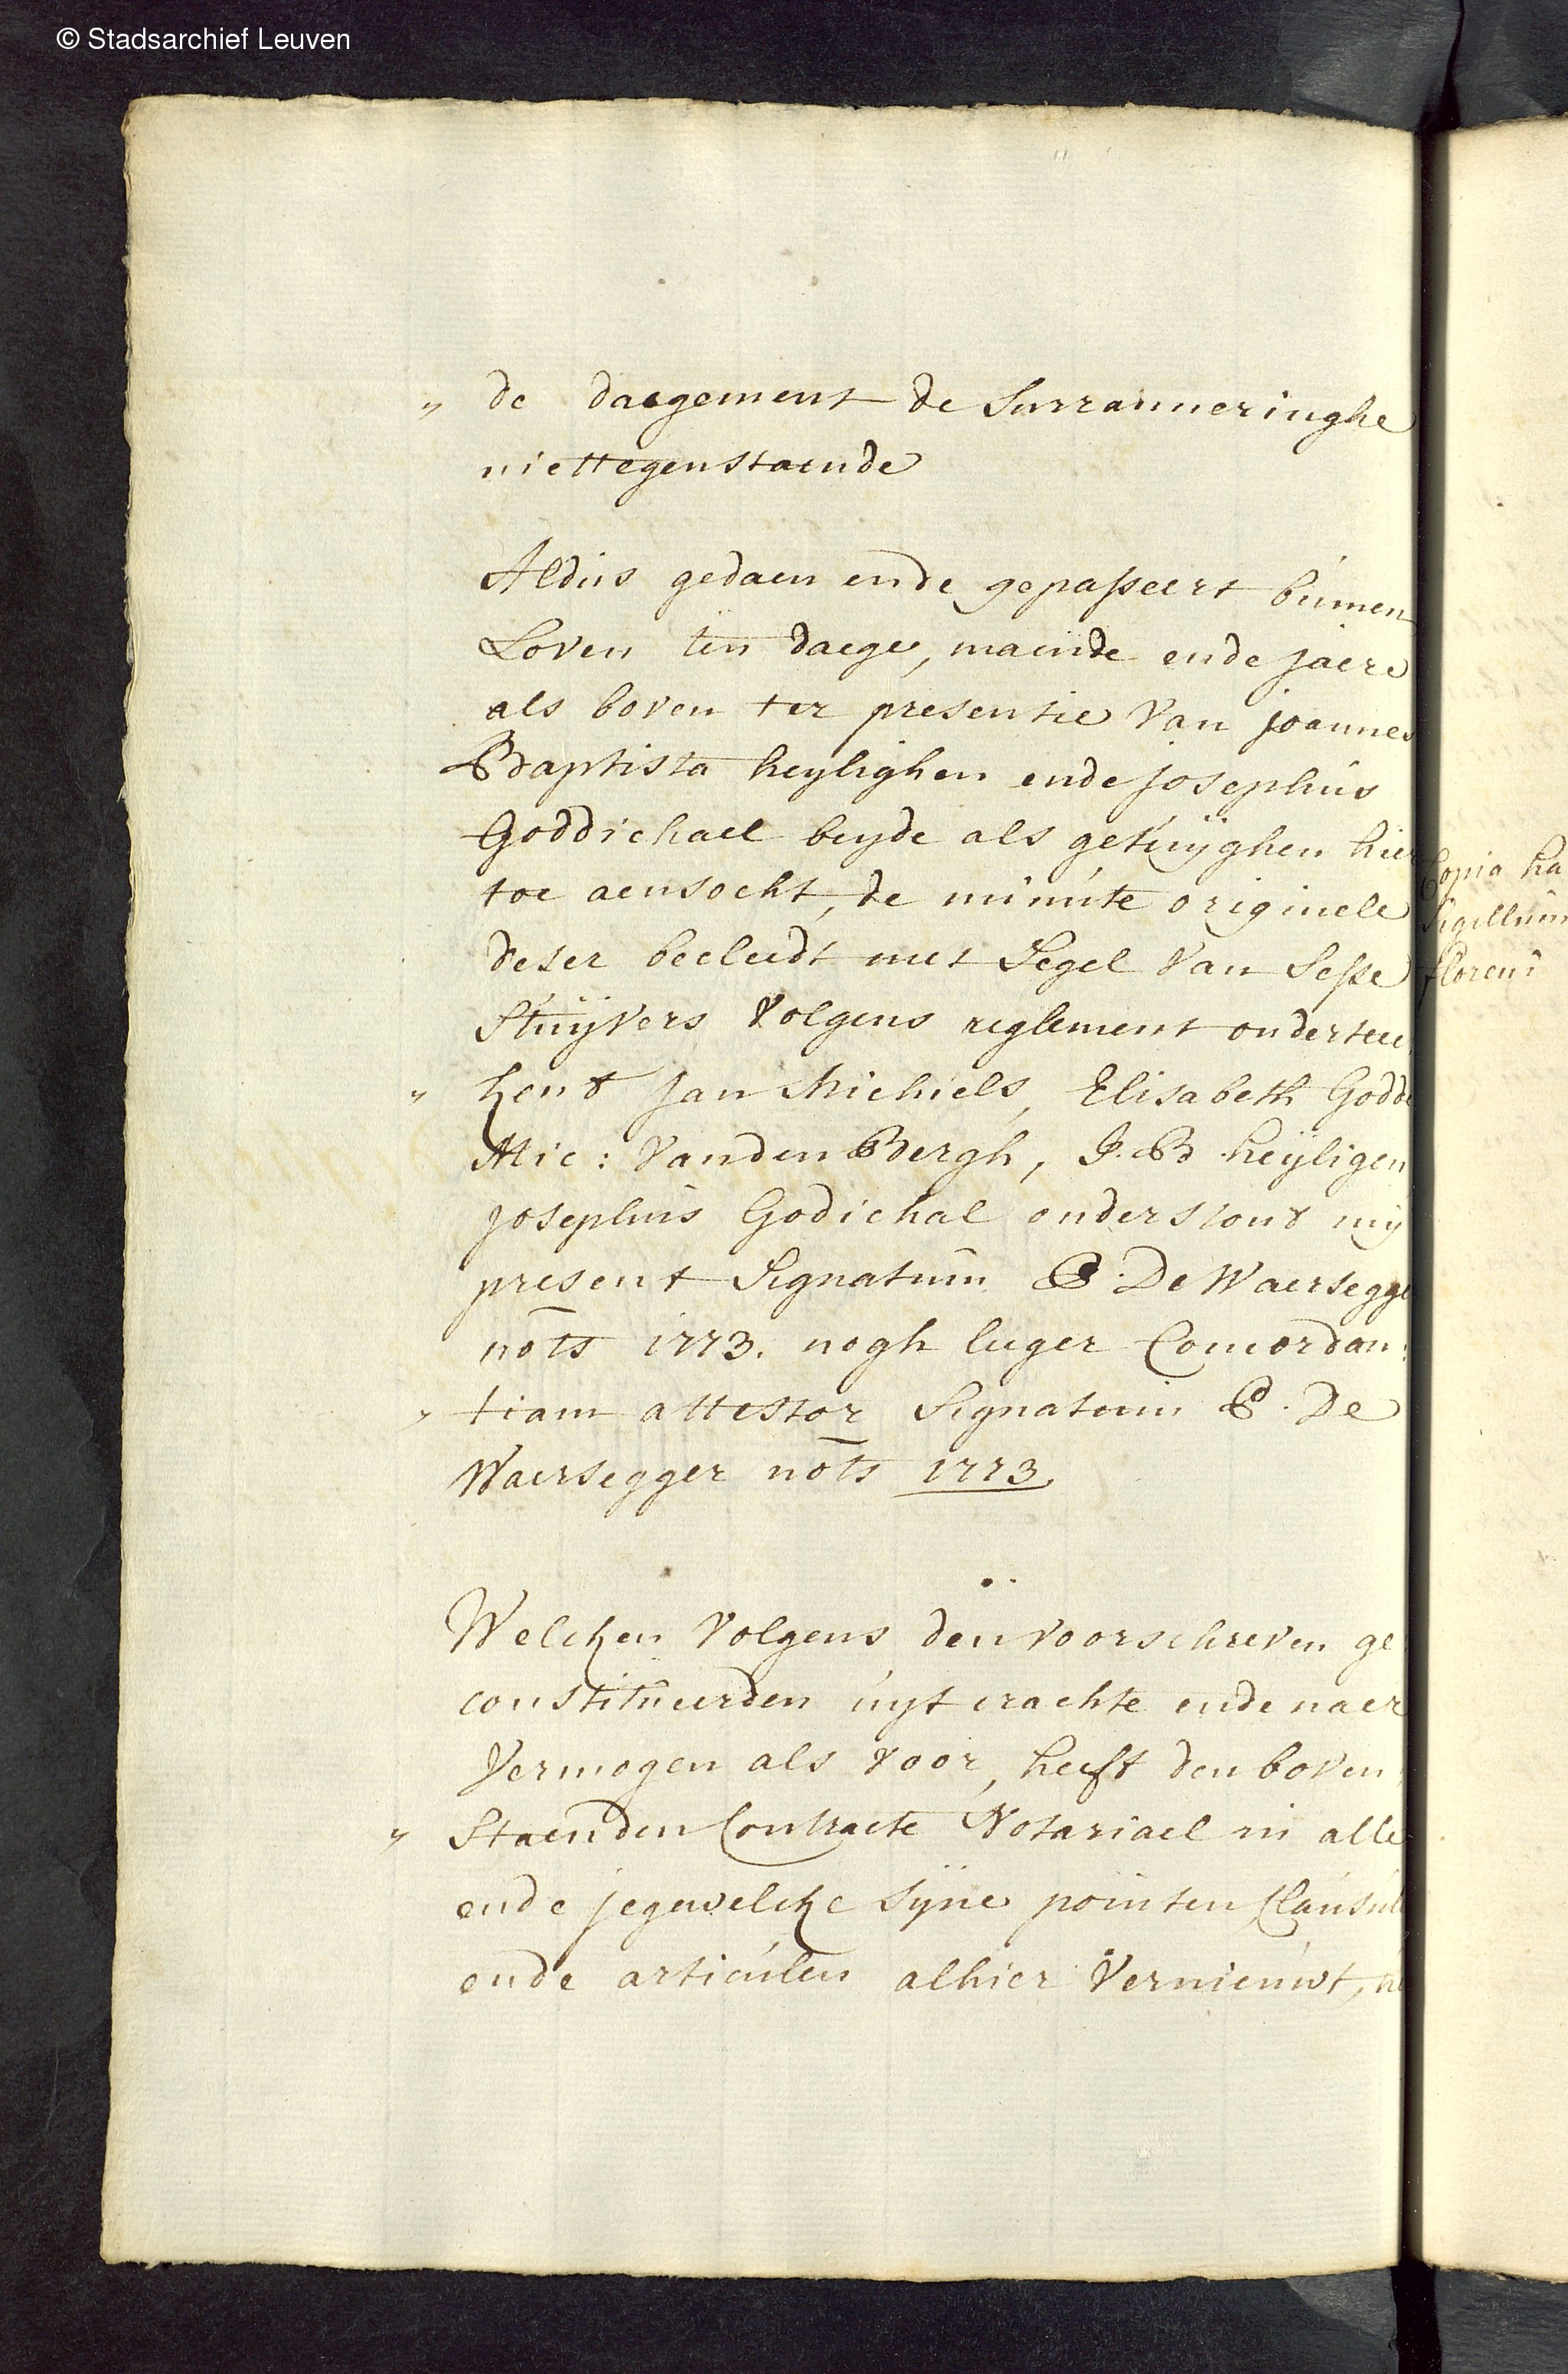 © Stadsarchief Leuven
" de daegement de Surranneringhe
niettegenstaende
Aldus gedaen ende gepasseert binnen
Loven ten daege, maende ende jaere
als boven ter presentie van joannes
Baptista heylighen ende josephus
Goddichael beyde als getuÿghen hier
toe aensocht, de minute originele
deser becleedt met Segel van Sesse
Stuÿvers volgens reglement ondertee
" kent Jan Michiels, Elisabeth Godd
Mic: Vanden Bergh, J. B heÿligen
josephus Godichal onderstont mij
present Signatum P. De Waersegge
nots 1773. nogh leeger Concordan:
" tiam attestor Signatum P. De
Waersegger nots 1773.
Welcken volgens den voorschreven ge
constitueerden uyt crachte ende naer
vermogen als voor, heeft den boven:
" Staenden Contracte Notariael in alle
ende jegewelcke syne pointen Clausul
ende articulen alhier vernieuwt,
Copia ha
Sigellum
floreni